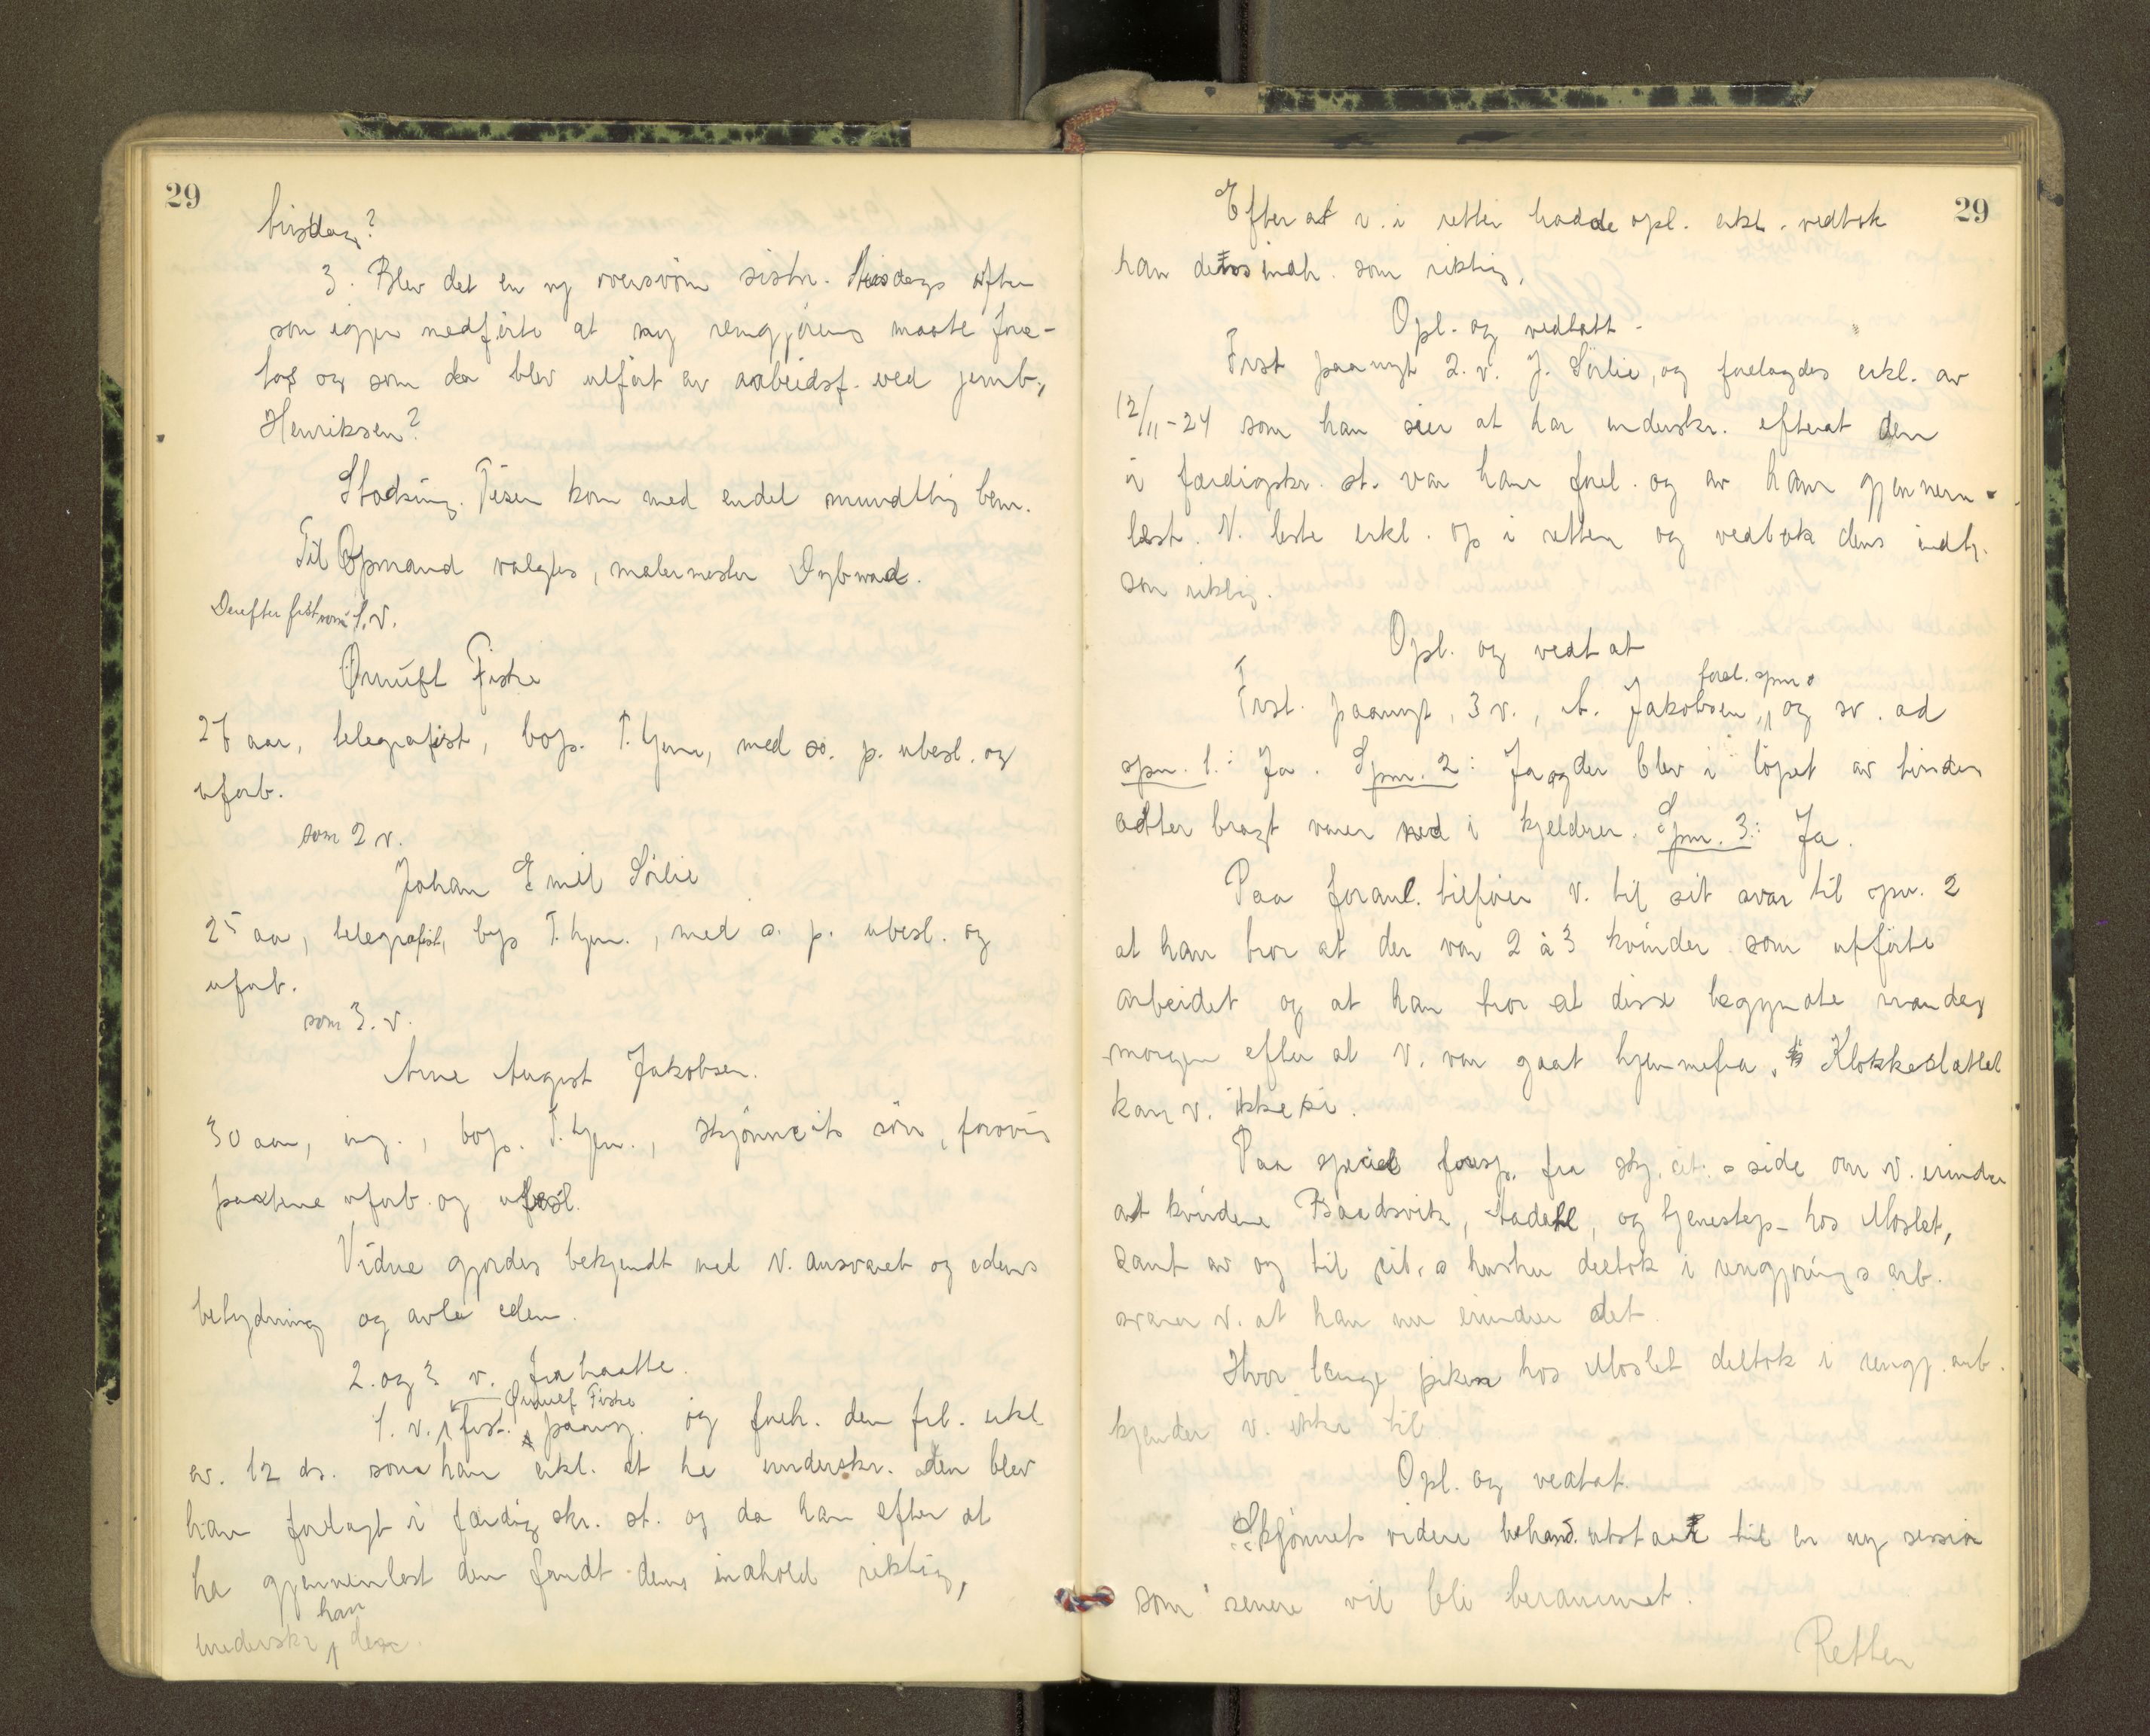 29
tirsdag?
3. Blev det en ny oversvöm sistn. tirsdags aften
som igjen medförte at ny rengjörings maate fore-
tas og som da blev utfört av arbeidsf. ved jernb.,
Henriksen?
Stadsing. Tisen kom med endel mundtlig bem.
Til Opmand valgtes, malermester Dybwad.
Derefter fristr. som 1. v.
Ørnulf Fiske
27 aar, telegrafist, bop. T.hjem, med s. p. ubesl. og
uforb.
som 2 v.
Johan Emil Sörlie
25 aar, telegrafist, bop T.hjem., med s. p. ubesl. og
uforb.
som 3. v.
Arne August Jakobsen.
30 aar, ing., bop. T.hjem., skjönnscits sön, forövrig
partene uforb. og ubesl.
Vidne gjordes bekjendt med v. ansvaret og edens
betydning og avla eden.
2. og 3 v. frahaatte.
1. v. Ørnulf Fiske frst. paany. og foreh. den frl. erkl
av. 12 ds. som han erkl. at ha underskr. den blev
ham forelagt i færdig skr. st. og da han efter at
ha gjennemlæst den fandt dens indhold riktig,
underskr han den.
29
Efter at v. i retten hadde opl. erkl. vedtok
han dens indh. som riktig.
Opl. og vedtatt.
Frst paanyt 2. v. J. Sörlie, og forelagdes erkl. av
12/11-24 som han sier at har underskr. efterat den
i færdigskr. st. var ham forel. og av ham gjennem-
læst. V. læste erkl. op i retten og vedtok dens indh.
som riktig.
Opl. og vedtat
Frst. paanyt, 3 v., A. Jakobsen, forel. spm. og sv. ad
spm. 1.: Ja. Spm. 2: Ja og der blev i löpet av tirsdag
atter bragt varer ned i kjelderen. Spm. 3: Ja.
Paa foranl. tilföier v. til sit svar til spm. 2
at han tror at der var 2 à 3 kvinder som utförte
arbeidet og at han tror at disse begyndte mandag
morgen efter at v. var gaat hjemmefra. Klokkeslættet
kan v. ikke si.
Paa speciel foresp. fra skj. cit. s side om v. erindrer
at kvinderne Baadsvik, Aadahl, og tjenestep. hos Moslet,
samt av og til cit. s hustru deltok i rengjörings arb.
svarer v. at han nu erindrer det.
Hvor længe piken hos Moslet deltok i rengj. arb.
kjender v. ikke til
Opl. og vedtat.
Skjönnets videre behand. utstaar til en ny session
som senere vil bli berammet.
Retten